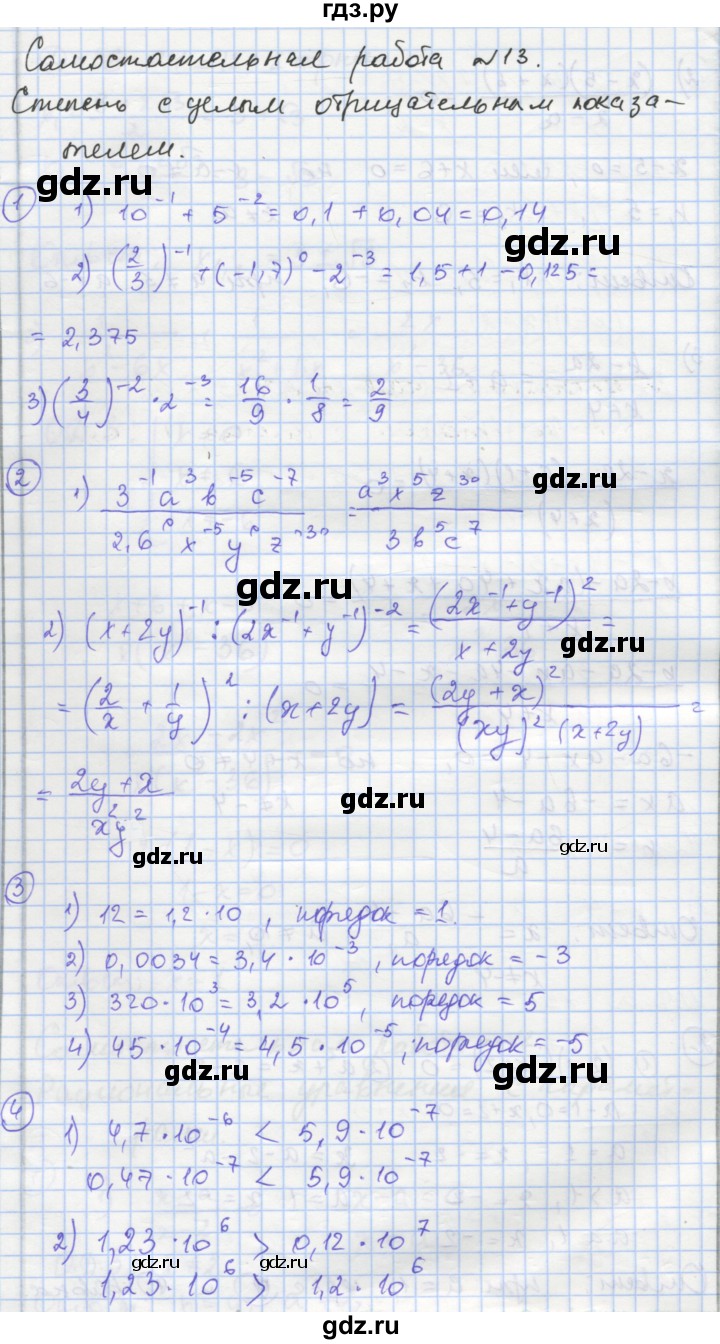 гдз.ру
Самостоятельная работа №13.
Степень с целым отрицательным показа-
телем.
gdz.ru
1 1) 10⁻¹ + 5⁻² = 0,1 + 0,04 = 0,14
gdz.ru
2) (2/3)⁻¹ + (-1,7)⁰ - 2⁻³ = 1,5 + 1 - 0,125 =
= 2,375
3) (3/4)⁻² · 2⁻³ = 16/9 · 1/8 = 2/9
gdz.ru
2 1) 3⁻¹ a³ b⁻⁵ c⁻⁷ / 2,6⁰ x⁻⁵ y⁰ z⁻³⁰ = a³ x⁵ z³⁰ / 3 b⁵ c⁷
gdz.ru
gdz.ru
2) (x+2y)⁻¹ : (2x⁻¹ + y⁻¹)⁻² = (2x⁻¹ + y⁻¹)² / x + 2y =
gdz.ru
= (2/x + 1/y)² : (x + 2y) = (2y + x)² / (xy)² (x + 2y) =
= 2y + x / x²y²
gdz.ru
gdz.ru
gdz.ru
3 1) 12 = 1,2 · 10 , порядок = 1.
2) 0,0034 = 3,4 · 10⁻³ , порядок = -3
3) 320 · 10³ = 3,2 · 10⁵ , порядок = 5
4) 45 · 10⁻⁴ = 4,5 · 10⁻⁵ , порядок = -5
gdz.ru
gdz.ru
4 1) 4,7 · 10⁻⁶ < 5,9 · 10⁻⁷
0,47 · 10⁻⁷ < 5,9 · 10⁻⁷
2) 1,23 · 10⁶ > 0,12 · 10⁷
gdz.ru
gdz.ru
1,23 · 10⁶ > 1,2 · 10⁶
gdz.ru